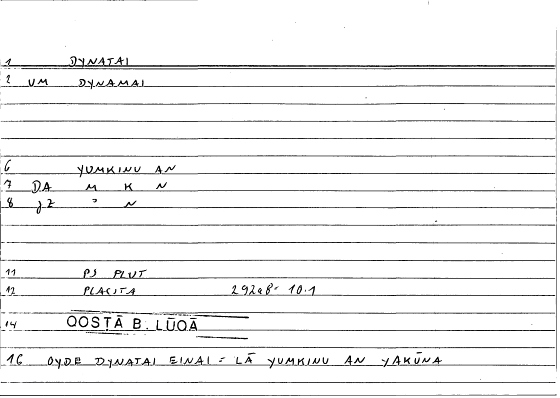 1 DYNATAI
2 UM DYNAMAI
6 YUMKINU AN
7 DA M K N
8 JZ ʾ N
11 PS PLUT
12 PLACITA 292a8-10.1
14 QOSṬĀ B. LŪQĀ
16 OYDE DYNATAI EINAI = LĀ YUMKINU AN YAKŪNA